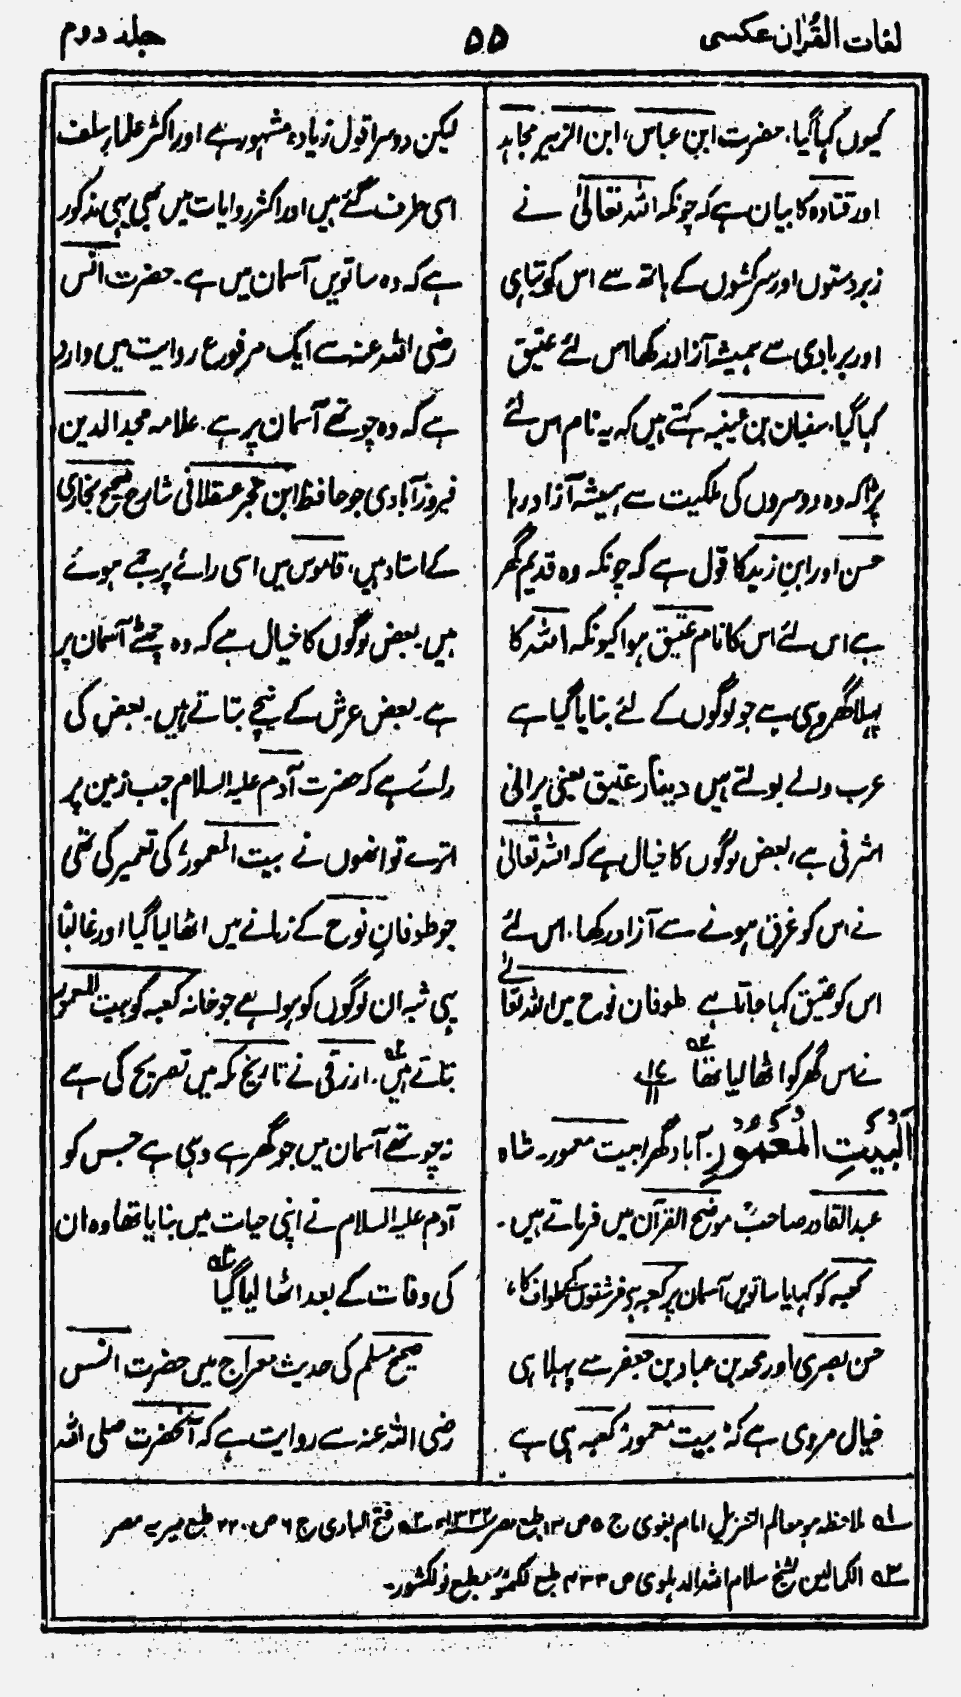 لغات القرآن عکسی
۵۵
جلد دوم
کیوں کہا گیا، حضرت ابن عباس، ابن الزبیر مجاہد
اور قتادہ کا بیان ہے کہ چونکہ اللہ تعالیٰ نے
زبردستوں اور سرکشوں کے ہاتھ سے اس کو تباہی
اور بربادی سے ہمیشہ آزاد رکھا اس لئے عتیق
کہا گیا، سفیان بن عیینہ کہتے ہیں کہ یہ نام اس لئے
پڑا کہ وہ دوسروں کی ملکیت سے ہمیشہ آزاد رہا
حسن اور ابن زید کا قول ہے کہ چونکہ وہ قدیم گھر
ہے اس لئے اس کا نام عتیق ہوا کیونکہ اللہ کا
پہلا گھر وہی ہے جو لوگوں کے لئے بنایا گیا ہے
عرب والے بولتے ہیں دینار عتیق یعنی پرانی
اشرفی ہے، بعض لوگوں کا خیال ہے کہ اللہ تعالیٰ
نے اس کو غرق ہونے سے آزاد رکھا، اس لئے
اس کو عتیق کہا جاتا ہے طوفان نوح میں اللہ تعالےٰ
نے اس گھر کو اٹھا لیا تھا
اَلْبَیْتِ الْمَعْمُوْرِ۔ آباد گھر، بیت معمور۔ شاہ
عبد القادر صاحبؒ موضح القرآن میں فرماتے ہیں۔
کعبہ کو کہا یا ساتویں آسمان پر کعبہ ہے فرشتوں کے طواف کا،
حسن بصری اور محمد بن عباد بن جعفر سے پہلا ہی
خیال مروی ہے کہ بیت معمور کعبہ ہی ہے
لیکن دوسرا قول زیادہ مشہور ہے اور اکثر علمار سلف
اسی طرف گئے ہیں اور اکثر روایات میں بھی یہی مذکور
ہے کہ وہ ساتویں آسمان میں ہے۔ حضرت انس
رضی اللہ عنہ سے ایک مرفوع روایت میں وارد
ہے کہ وہ چوتھے آسمان پر ہے۔ علامہ مجد الدین
فیروز آبادی جو حافظ ابن حجر عسقلانی شارح صحیح بخاری
کے استاد ہیں، قاموس میں اسی رائے پر جمے ہوئے
ہیں۔ بعض لوگوں کا خیال ہے کہ وہ چھٹے آسمان پر
ہے۔ بعض عرش کے نیچے بتاتے ہیں۔ بعض کی
رائے ہے کہ حضرت آدم علیہ السلام جب زمین پر
اترے تو انھوں نے بیت المعمور کی تعمیر کی تھی
جو طوفانِ نوح کے زمانے میں اٹھا لیا گیا اور غالبًا
یہی شبہ ان لوگوں کو ہوا ہے جو خانہ کعبہ کو بیت المعمور
بتاتے ہیں۔ ازرقی نے تاریخ مکہ میں تصریح کی ہے
کہ چوتھے آسمان میں جو گھر ہے وہی ہے جس کو
آدم علیہ السلام نے اپنی حیات میں بنایا تھا وہ ان
کی وفات کے بعد اٹھا لیا گیا
صحیح مسلم کی حدیث معراج میں حضرت انس
رضی اللہ عنہ سے روایت ہے کہ آنحضرت صلی اللہ
۱ ملاحظہ ہو معالم التنزیل امام بغوی ج ۵ ص ۱۳ طبع مصر ۱۳۳۲ھ ۲ فتح الباری ج ۶ ص ۲۲۰ طبع میریہ مصر
۳ الکمالین شیخ سلام اللہ الدہلوی ص ۴۳۳ طبع لکھنؤ مطبع نولکشور۔